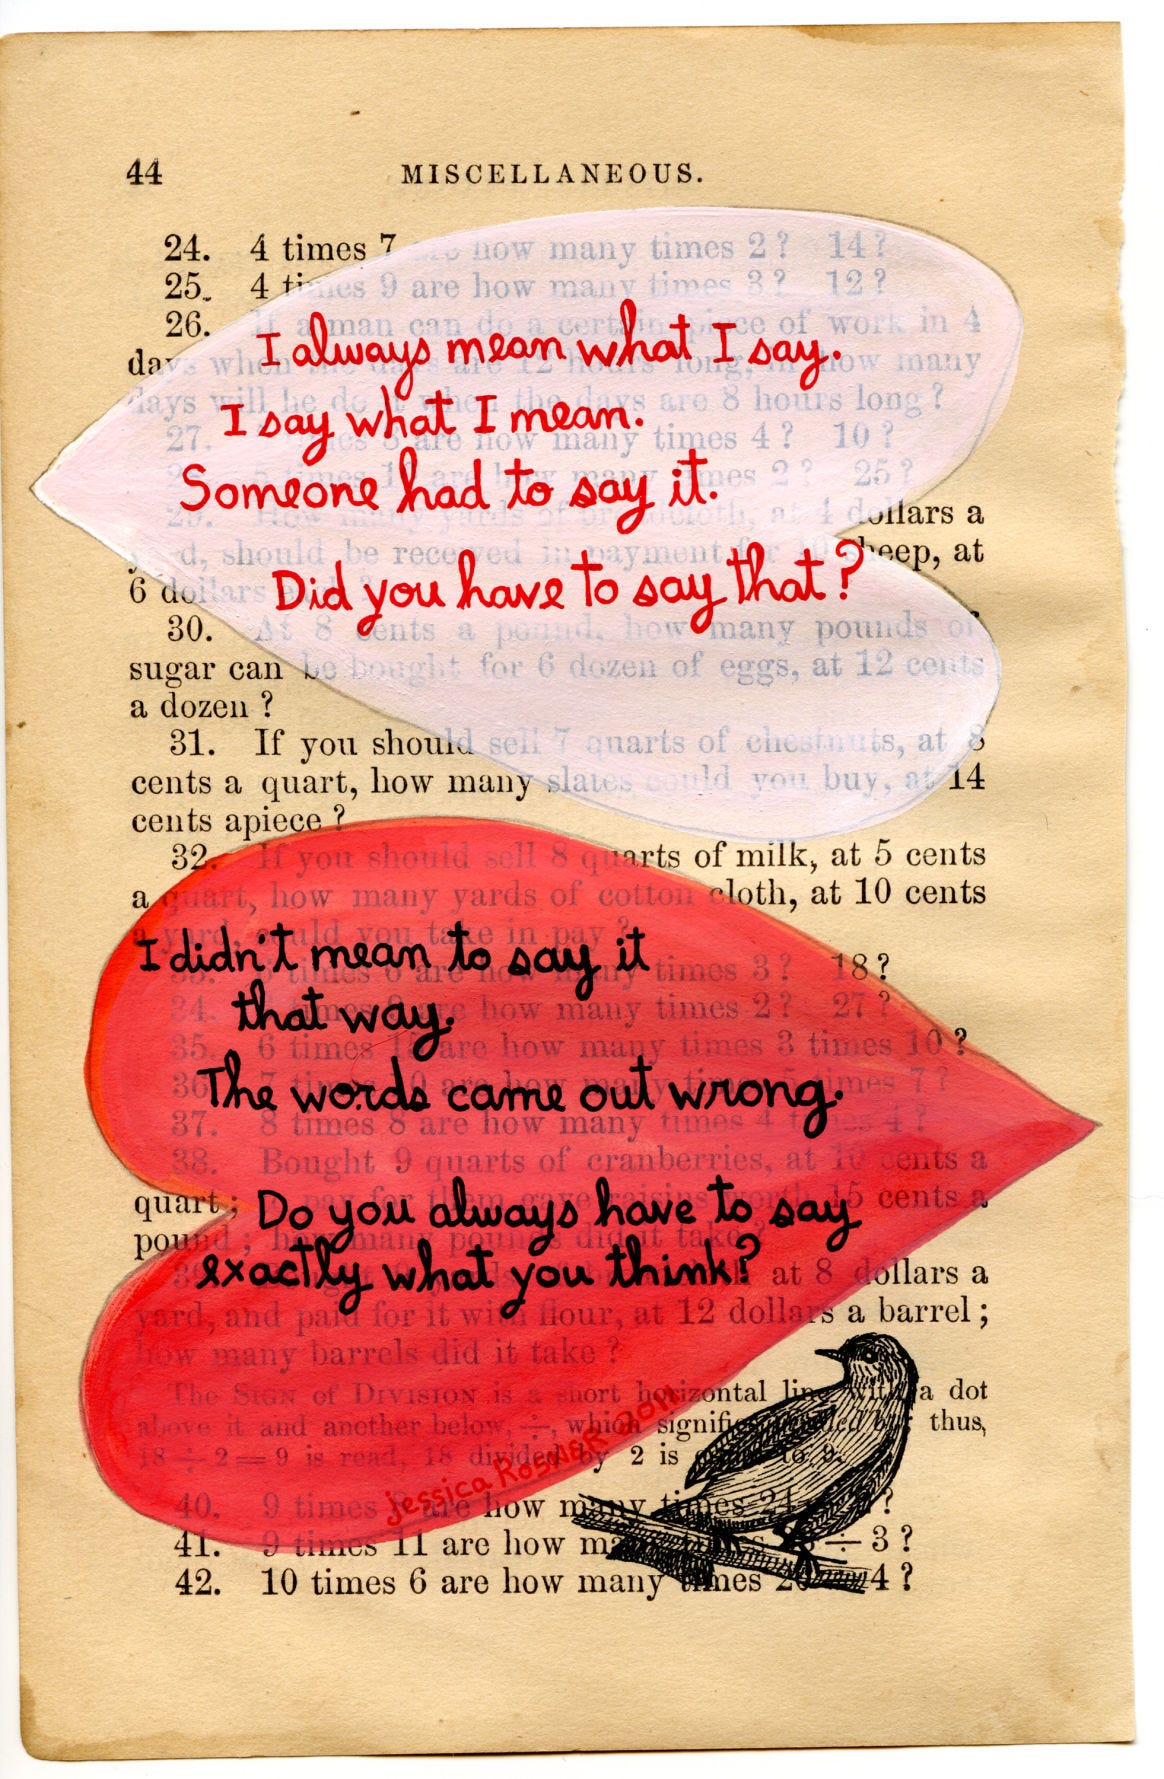 44 MISCELLANEOUS.
24. 4 times 7 are how many times 2? 14?
25. 4 times 9 are how many times 3? 12?
26. If a man can do a certain piece of work in 4
I always mean what I say.
days when the days are 12 hours long, in how many
days will he do it when the days are 8 hours long?
I say what I mean.
27. are how many times 4? 10?
are how many times 2? 25?
Someone had to say it.
29. How many yards of broadcloth, at 4 dollars a
yard, should be received in payment for 10 sheep, at
6 dollars
Did you have to say that?
30. At 8 cents a pound, how many pounds of
sugar can be bought for 6 dozen of eggs, at 12 cents
a dozen?
31. If you should sell 7 quarts of chestnuts, at 8
cents a quart, how many slates could you buy, at 14
cents apiece?
32. If you should sell 8 quarts of milk, at 5 cents
a quart, how many yards of cotton cloth, at 10 cents
a yard, could you take in pay?
I didn't mean to say it
times 6 are how many times 3? 18?
34. times are how many times 2? 27?
that way.
35. 6 times are how many times 3 times 10?
36. 7 times are how many times 5 times 7?
The words came out wrong.
37. 8 times 8 are how many times 4 times 4?
38. Bought 9 quarts of cranberries, at 10 cents a
quart; pay for them gave raisins worth 15 cents a
Do you always have to say
pound; how many pounds did it take?
exactly what you think?
at 8 dollars a
yard, and paid for it with flour, at 12 dollars a barrel;
how many barrels did it take?
The Sign of Division is a short horizontal line, with a dot
above it and another below, ÷, which signifies divided by; thus,
18 ÷ 2 = 9 is read, 18 divided by 2 is equal to 9.
Jessica Rosner 2011
40. 9 times 8 are how many times 24 ?
41. 9 times 11 are how many times ÷ 3?
42. 10 times 6 are how many times 4?